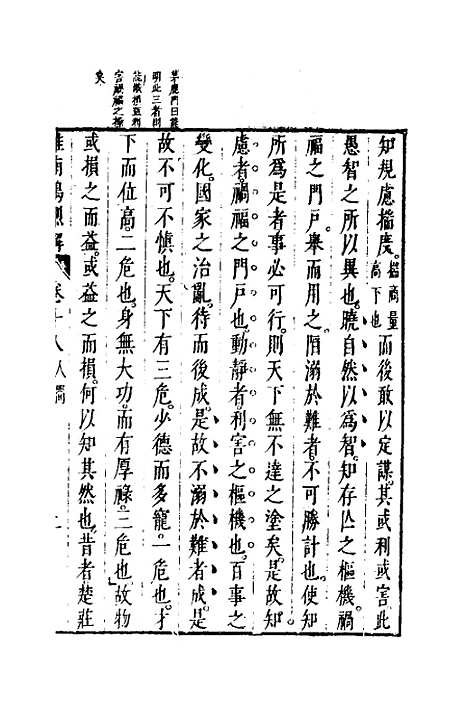 茅鹿門曰
明此三者則
害禍福之
矣
知規慮揣度。揣商量高下也而後敢以定謀。其或利或害。此
愚智之所以異也。曉自然以為智。知存亾之樞機。禍
福之門戶。舉而用之。陷溺於難者。不可勝計也。使知
所為是者。事必可行。則天下無不達之塗矣。是故知
慮者。禍福之門戶也。動靜者。利害之樞機也。百事之
變化。國家之治亂。待而後成。是故不溺於難者成。是
故不可不慎也。天下有三危。少德而多寵。一危也。才
下而位高。二危也。身無大功。而有厚祿。三危也。故物
或損之而益。或益之而損。何以知其然也。昔者楚莊
淮南鴻烈解 卷十八人間 二